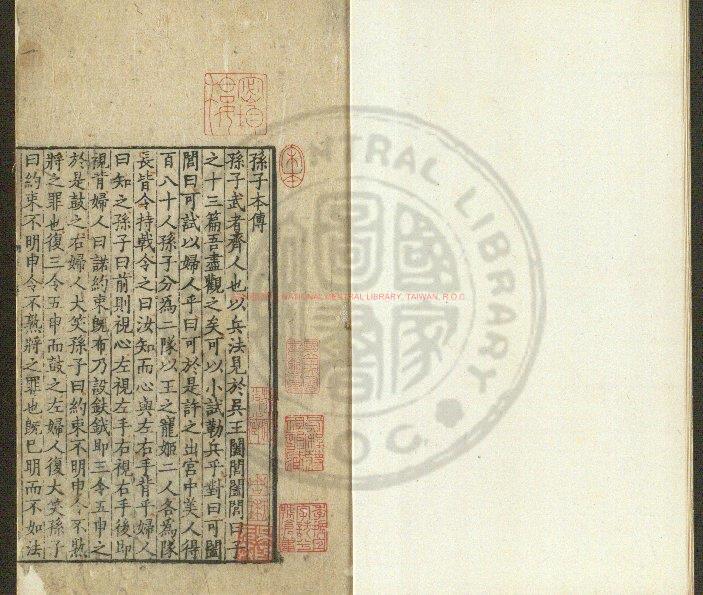 孫子本傳
孫子武者齊人也以兵法見於吳王闔閭闔閭曰子
之十三篇吾盡觀之矣可以小試勒兵乎對曰可闔
閭曰可試以婦人乎曰可於是許之出宮中美人得
百八十人孫子分為二隊以王之寵姬二人各為隊
長皆令持戟令之曰汝知而心與左右手背乎婦人
曰知之孫子曰前則視心左視左手右視右手後即
視背婦人曰諾約束既布乃設鈇鉞即三令五申之
於是鼓之右婦人大笑孫子曰約束不明申令不熟
將之罪也復三令五申而鼓之左婦人復大笑孫子
曰約束不明申令不熟將之罪也既已明而不如法
NATIONAL CENTRAL LIBRARY, TAIWAN, R.O.C.
CENTRAL LIBRARY
國家圖書館